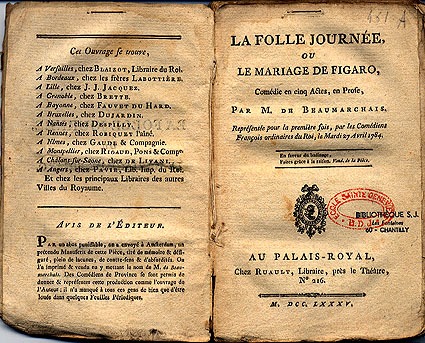 Cet Ouvrage se trouve,
A Versailles, chez BLAIZOT, Libraire du Roi.
A Bordeaux, chez les frères LABOTTIERE.
A Lille, chez J. J. JACQUEZ.
A Grenoble, chez BRETTE.
A Bayonne, chez FAUVET DU HARD.
A Bruxelles, chez DUJARDIN.
A Nantes, chez DESPILLY.
A Rennes, chez ROBIQUET l'aîné.
A Nîmes, chez GAUDE & Compagnie.
A Montpellier, chez RIGAUD, PONS & Comp.
A Châlons-sur-Saone, chez DE LIVANI.
A Angers, chez PAVIE, Lib. Imp. du Roi.
Et chez les principaux Libraires des autres
Villes du Royaume.
AVIS DE L'ÉDITEUR.
PAR un abus punissable, on a envoyé à Amsterdam, un
prétendu Manuscrit de cette Pièce, tiré de mémoire & défi-
guré, plein de lacunes, de contre-sens & d'absurdités. On
l'a imprimé & vendu en y mettant le nom de M. de Beau-
marchais. Des Comédiens de Province se sont permis de
donner & représenter cette production comme l'ouvrage de
l'Auteur ; il n'a manqué à tous ces gens de bien que d'être
loués dans quelques Feuilles Périodiques.
LA FOLLE JOURNÉE,
OU
LE MARIAGE DE FIGARO,
Comédie en cinq Actes, en Prose,
PAR M. DE BEAUMARCHAIS.
Représentée pour la première fois, par les Comédiens
Français ordinaires du Roi, le Mardi 27 Avril 1784.
En faveur du badinage,
Faites grâce à la raison. Vaud. de la Pièce.
BIBLIOTHEQUE S. J.
60 - CHANTILLY
AU PALAIS-ROYAL,
Chez RUAULT, Libraire, près le Théâtre,
N° 216.
M. DCC. LXXXV.